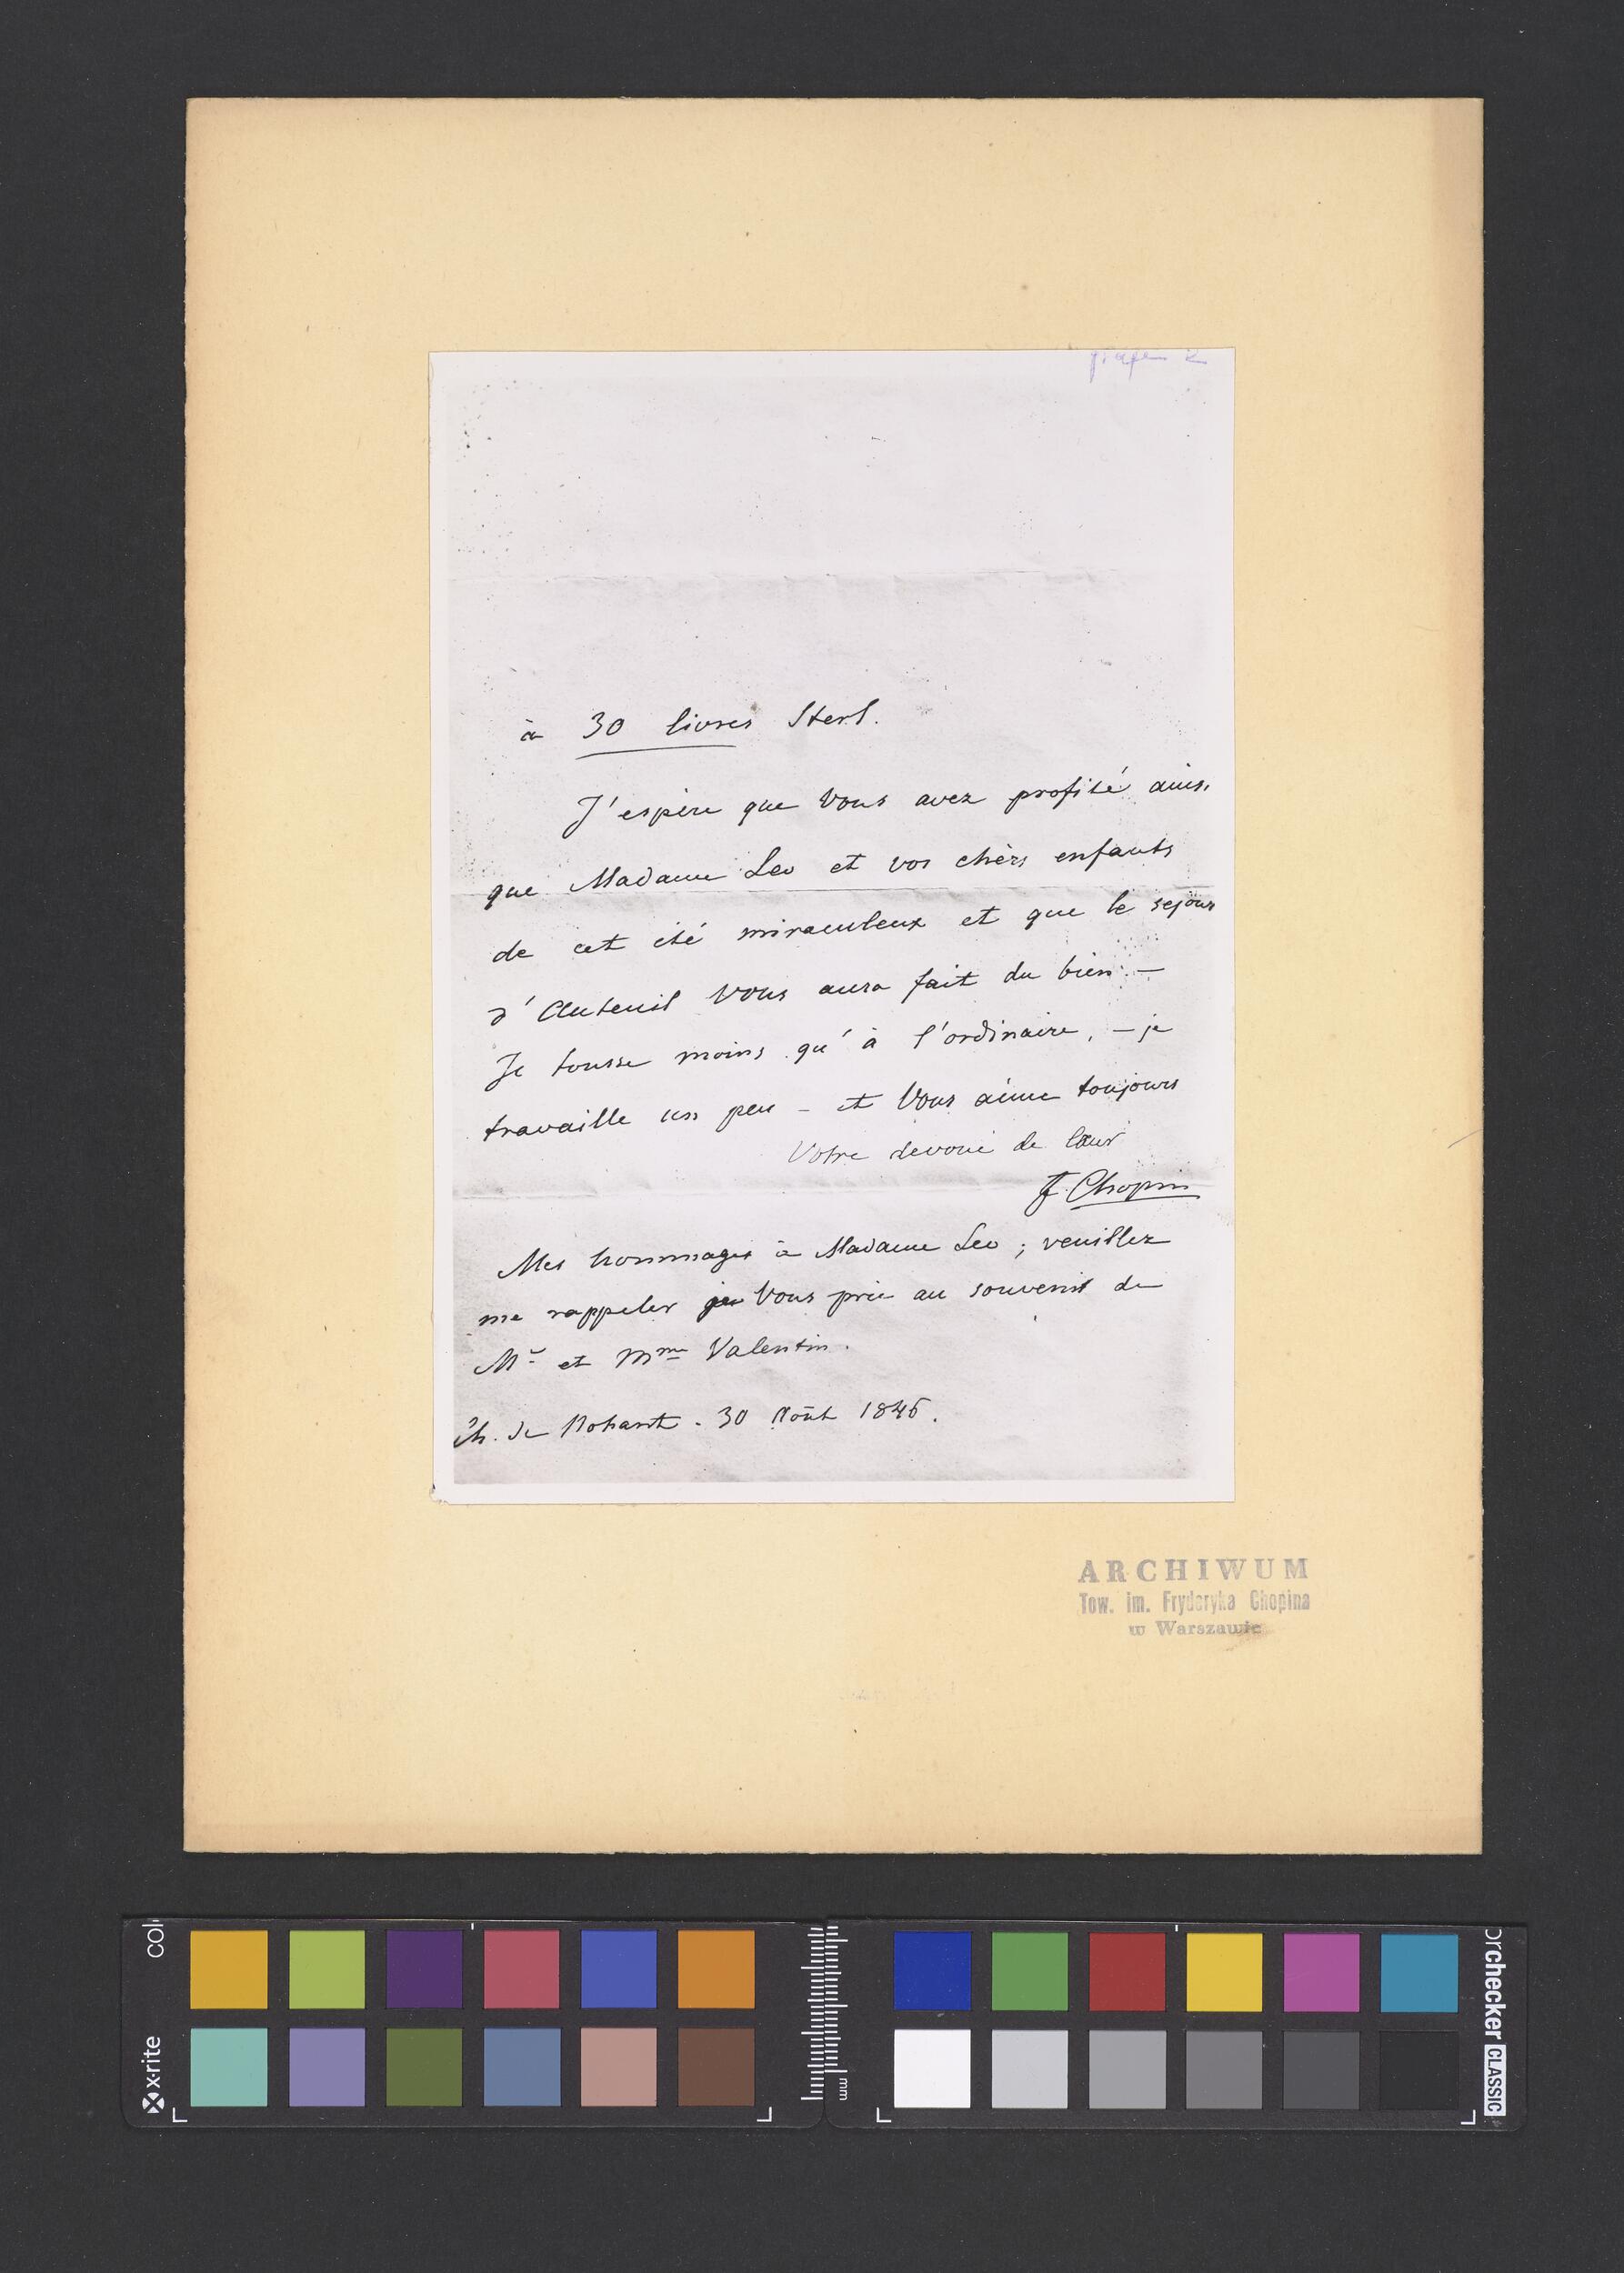 à 30 livres Sterl.
J'espère que Vous avez profité ainsi
que Madame Leo et vos chèrs enfants
de cet été miraculeux et que le sejour
d'Auteuil Vous aura fait du bien. —
Je tousse moins qu'à l'ordinaire, — je
travaille un peu – et Vous aime toujours
Votre devoué de cœur
F. Chopin
Mes hommages à Madame Leo ; veuillez
me rappeler je Vous prie au souvenir de
Mr et Mme Valentin.
Ch. de Nohant. 30 Août 1846.
ARCHIWUM
Tow. im. Fryderyka Chopina
w Warszawie
x-rite
col
mm
orchecker CLASSIC